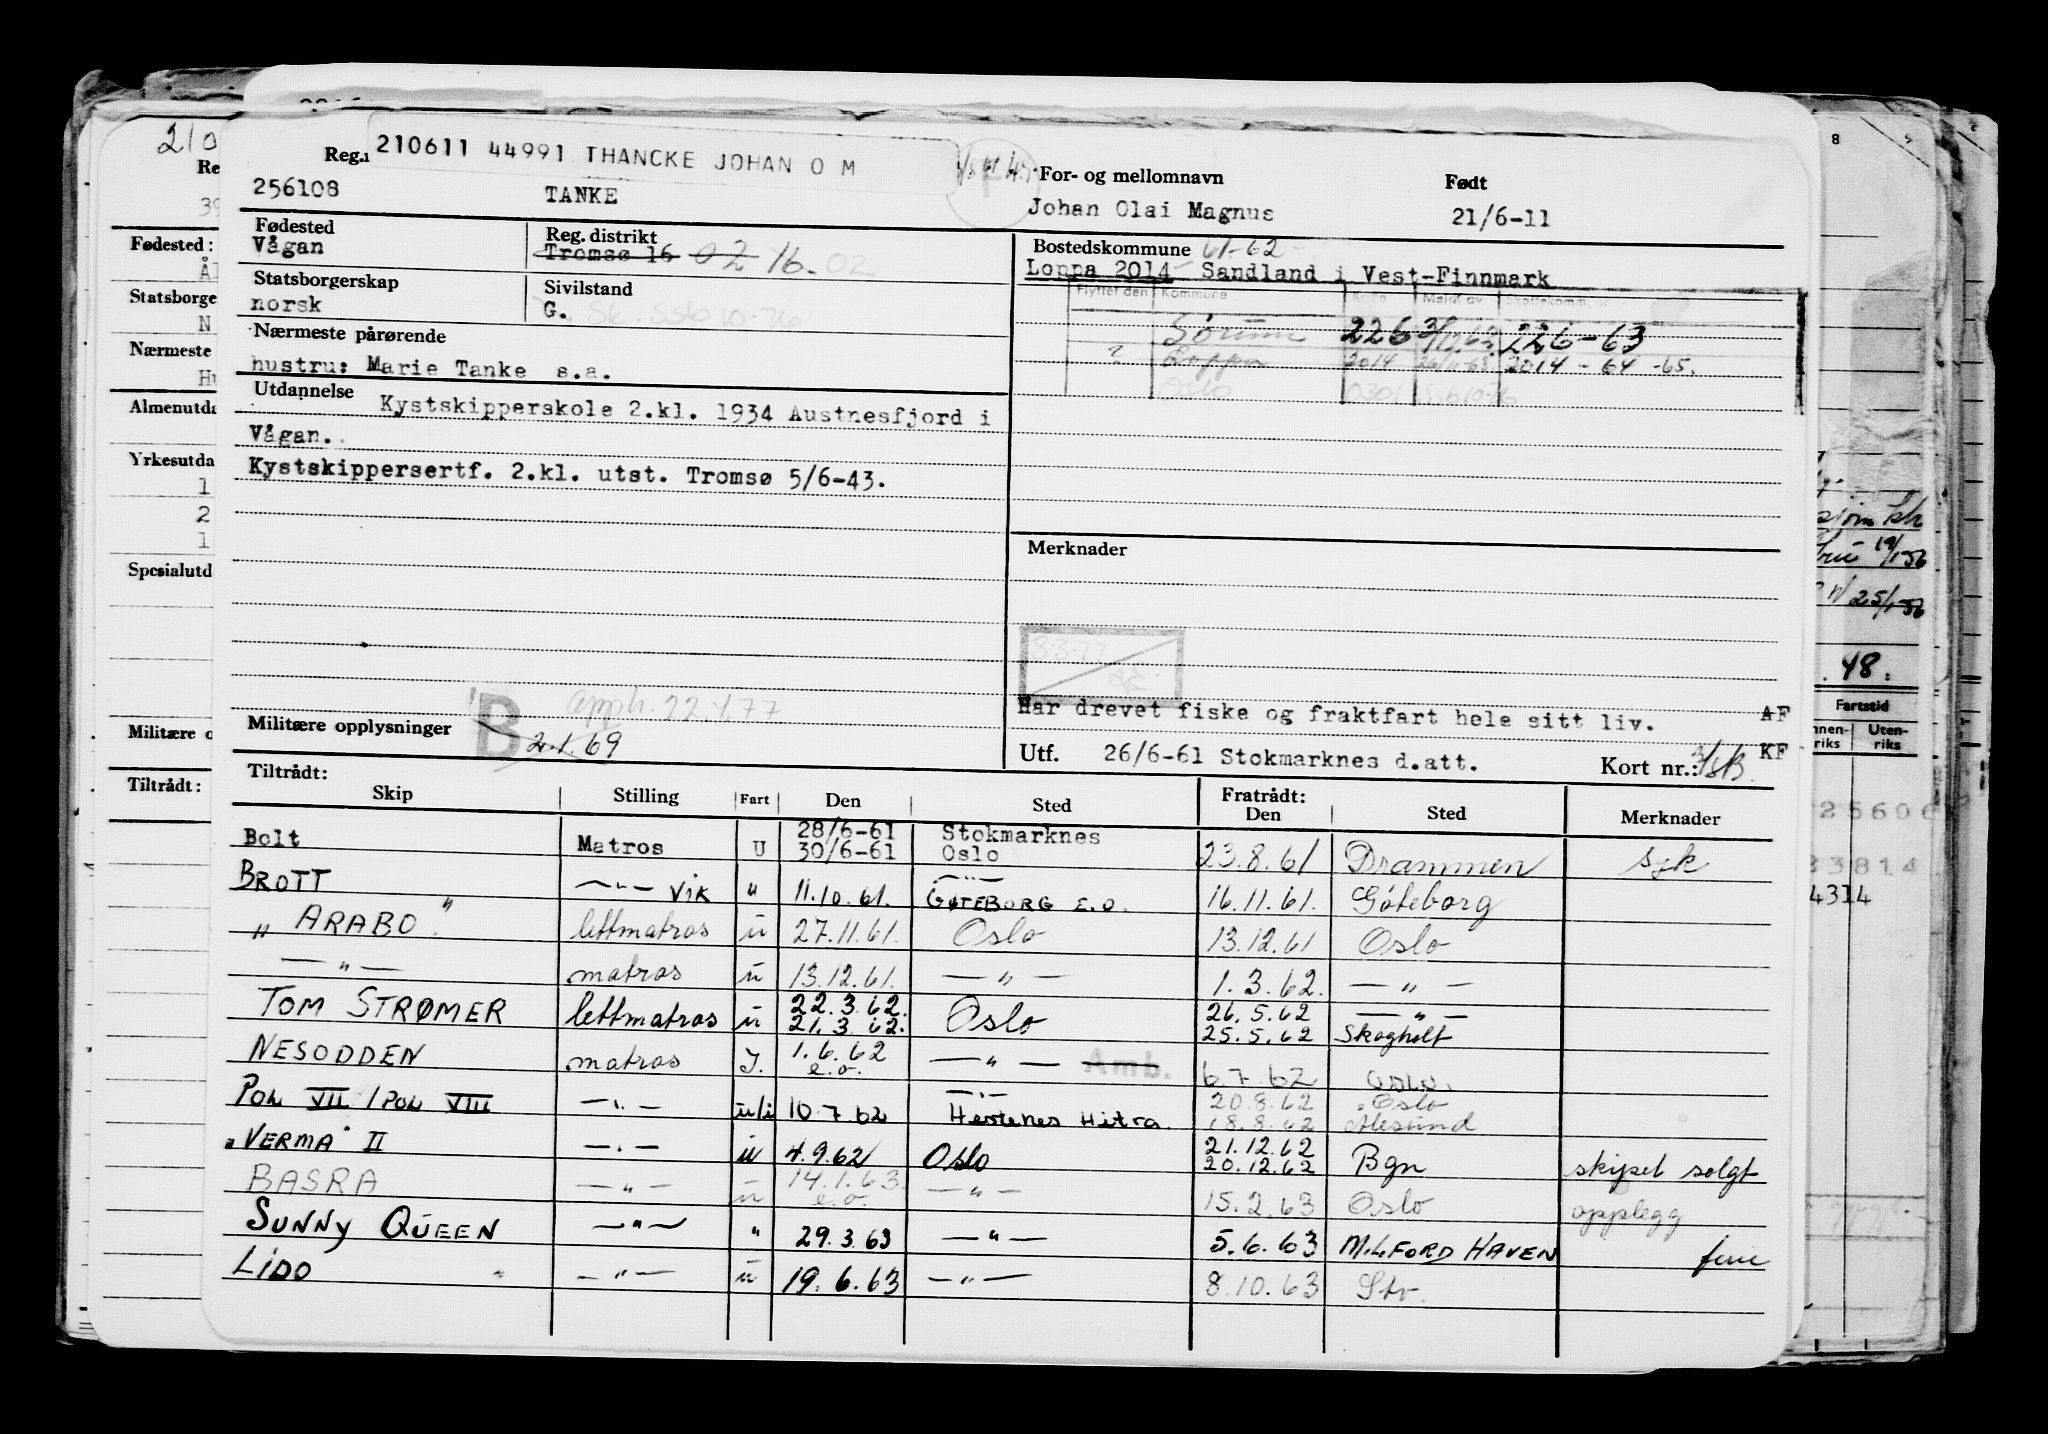 210611 44991 THANCKE JOHAN O M
Reg.
256108 TANKE
For- og mellomnavn
Johan Olai Magnus
Født
21/6-11
Fødested
Vågan
Reg. distrikt
Tromsø 16 02 16. 02
Bostedskommune 61-62
Loppa 2014 Sandland i Vest-Finnmark
Statsborgerskap
norsk
Sivilstand
G.
Flyttet den Kommune Meldt av
Sørum 226 226-63
2014 2014 - 64 -65.
Oslo 0301
Nærmeste pårørende
hustru: Marie Tanke s.a.
Utdannelse Kystskipperskole 2.kl. 1934 Austnesfjord i
Vågan.
Kystskippersertf. 2.kl. utst. Tromsø 5/6-43.
Merknader
8.3.77
Har drevet fiske og fraktfart hele sitt liv. AF
Militære opplysninger B
22.4.77
2.1.69
Utf. 26/6-61 Stokmarknes d.att. Kort nr.: KF
Tiltrådt: Fratrådt:
Skip Stilling Fart Den Sted Den Sted Merknader
Bolt Matros U 28/6-61 Stokmarknes
30/6-61 Oslo 23.8.61 Drammen syk
BROTT —"— VIK " 11.10.61. —"—
GØTEBORG E.O. 16.11.61. Göteborg
" ARABO " lettmatros u 27.11.61. Oslo 13.12.61 Oslo
—"— matros u 13.12.61. —"— 1.3.62. —"—
TOM STRØMER lettmatros u 22.3.62. Oslo 26.5.62 —"—
21.3.62. 25.5.62 Skogholt
NESODDEN matros I. 1.6.62 —"— Amb. 6.7.62 OSLO.
e.o.
POL VII / POL VIII —"— u/i 10.7.62 —"— 20.8.62 Oslo
Hestenes Hitra. 18.8.62 Ålesund
"VERMA" II —"— u 4.9.62 Oslo 21.12.62
20.12.62 Bgn skipet solgt
BASRA —"— u 14.1.63. —"— 15.2.63 Oslo opplegg
e.o.
SUNNY QUEEN —"— " 29.3.63 —"— 5.6.63 MILFORD HAVEN ferie
LIDO —"— u 19.6.63 —"— 8.10.63 Stv.
210
Re
39
Fødested:
Statsborge
N
Nærmeste
Almenutda
Yrkesutda
1
2
1
Spesialutd
Militære o
Tiltrådt:
8
48.
Fartstid
Uten-
riks
25606
33814
4314